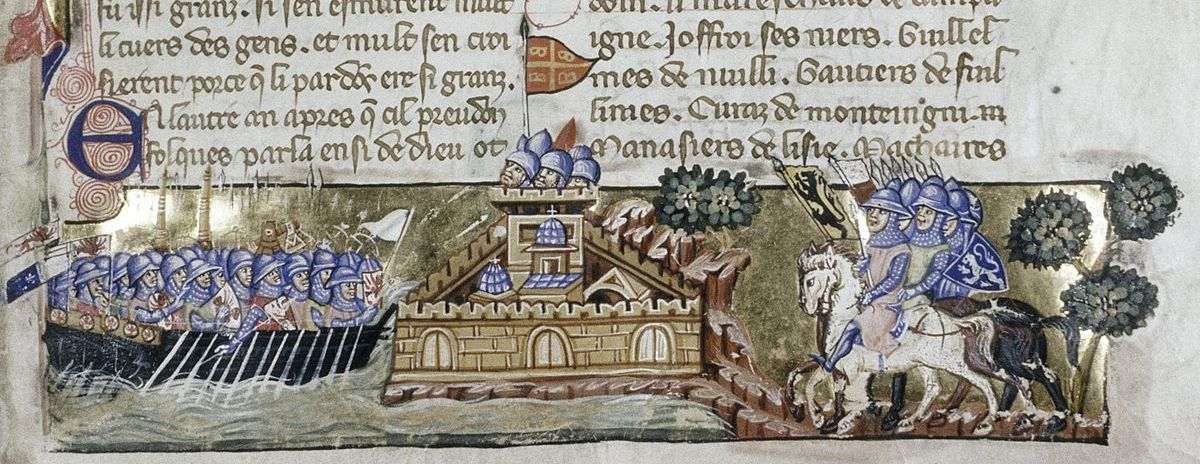 fu issi granz. Si sen esmurent mult
li cuers des gens. et mult sen croi
sierent porce q̃ li pardõs ere si granz.
EN lautre an apres q̃ cil preudom
folques parla ensi de dieu ot
dom. li mareschaus de campa
igne. Joffroi ses niers. Guillel
mes de nuilli. Gautiers de fuil
limes. Euraz de monteingni. m
Manasiers de lisle. Machaires